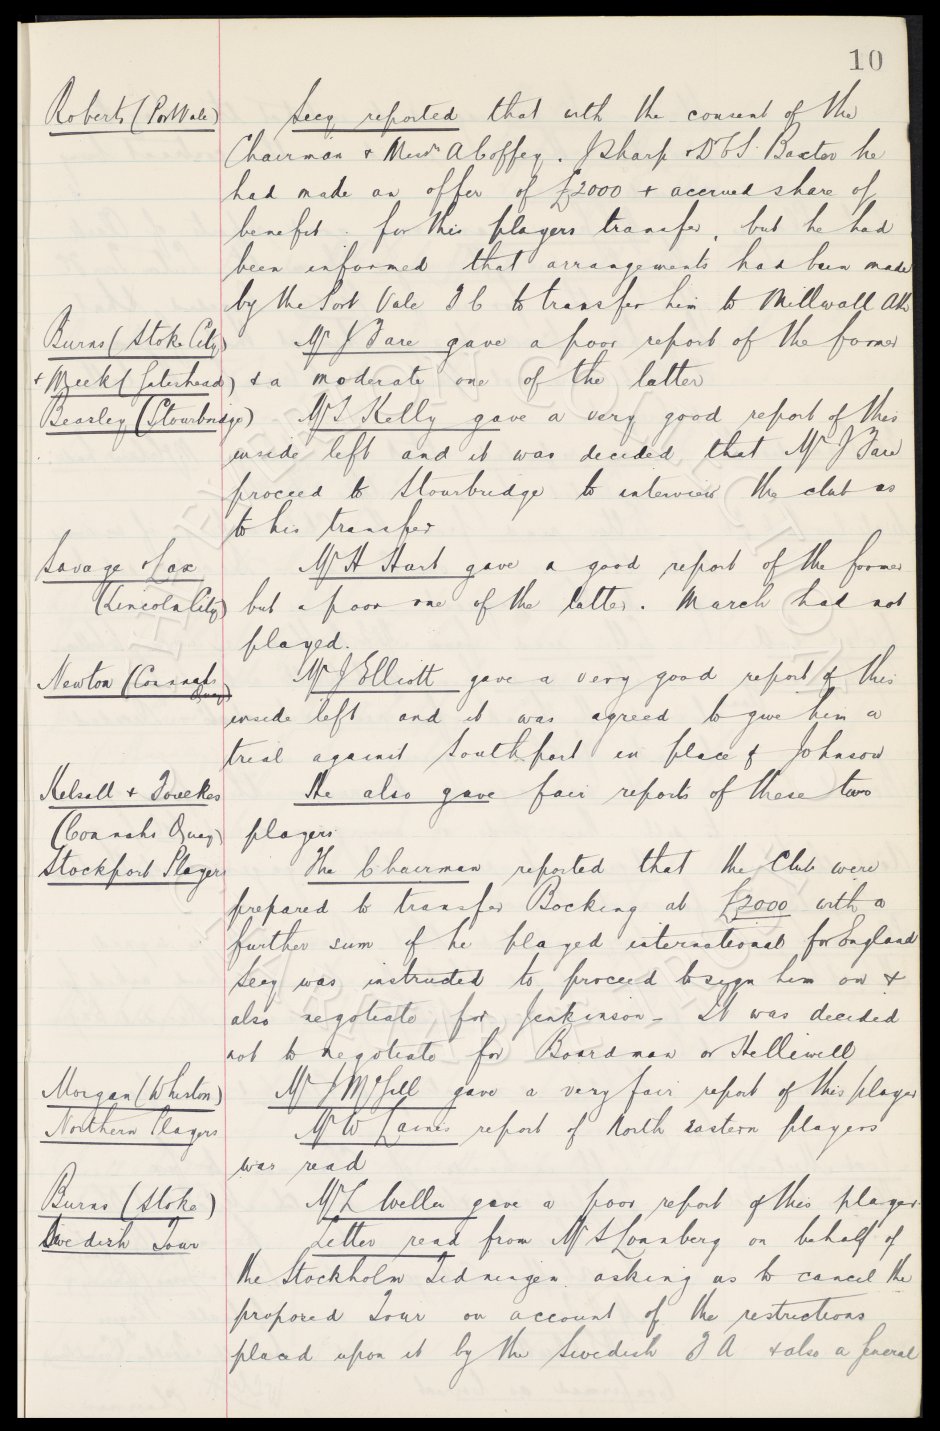 10
Roberts (Port Vale) Secy reported that with the consent of the
Chairman & Messrs A Coffey. J Sharp & Dr C S Baxter he
had made an offer of £2000 & accrued share of
benefit for this players transfer, but he had
been informed that arrangements had been made
by the Port Vale F C to transfer him to Millwall Ath
Burns (Stoke City) Mr J Fare gave a poor report of the former
& Meek (Gateshead) & a moderate one of the latter
Bearley (Stourbridge) Mr T Kelly gave a very good report of this
inside left and it was decided that Mr J Fare
proceed to Stourbridge to interview the club as
to his transfer
Savage & Lax Mr H Hart gave a good report of the former
(Lincoln City) but a poor one of the latter. March had not
played.
Newton (Connahs Quay) Mr J Elliott gave a very good report of this
inside left and it was agreed to give him a
trial against Southport in place of Johnson
Kelsall & Foulkes He also gave fair reports of these two
(Connahs Quay) players
Stockport Players The Chairman reported that the Club were
prepared to transfer Bocking at £2000 with a
further sum if he played international for England
Secy was instructed to proceed to sign him on &
also negotiate for Jenkinson - It was decided
not to negotiate for Boardman or Helliwell
Morgan (Whiston) Mr J McGill gave a very fair report of this player
Northern Players Mr W Laines report of North Eastern players
was read
Burns (Stoke) Mr L Weller gave a poor report of this player
Swedish Tour Letter read from Mr S Lonnberg on behalf of
the Stockholm Tidningen asking us to cancel the
proposed Tour on account of the restrictions
placed upon it by the Swedish F A & also a General